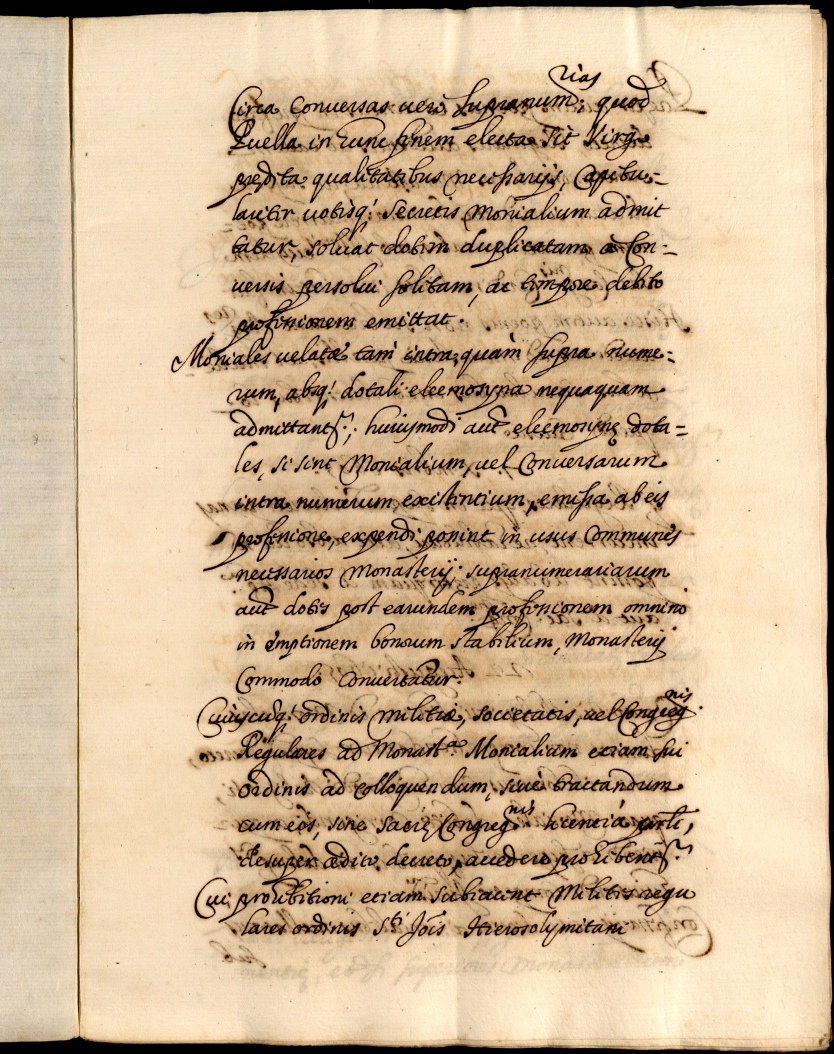 Circa Conversas verò supranum:rias quod
Puella in hunc finem electa sit Virgo
prędita qualitatibus necessarijs, Capitu-
lariter votisq; secretis Monialium admit
tatur, solvat dotem duplicatam à Con-
versis persolvi solitam, ac tempore debito
professionem emittat.
Moniales velatæ tam intra, quam supra nume-
rum, absq; dotali eleemosyna nequaquam
admittantr; huiusmodi aut eleemosynę dota=
les, si sint Monialium, vel Conversarum
intra numerum existentium, emissa ab eis
professione, expendi possint in usus Communes
necessarios Monasterij; supranumerariarum
aut dotes post earundem professionem omnino
in emptionem bonorum stabilium, Monasterij
Commodo Convertatur.
Cuiuscuq; ordinis militiæ, societatis, vel Congregnis
Regulares ad Monastra Monialium etiam sui
ordinis ad Colloquendum, sive tractandum
cum eis, sine sacrę Congregnis licentia
desuper ædito decreto, accedere prohibentr.
Cui prohibitioni etiam subiacent Milites regu
lares ordinis Sti Jois Hierosolymitani